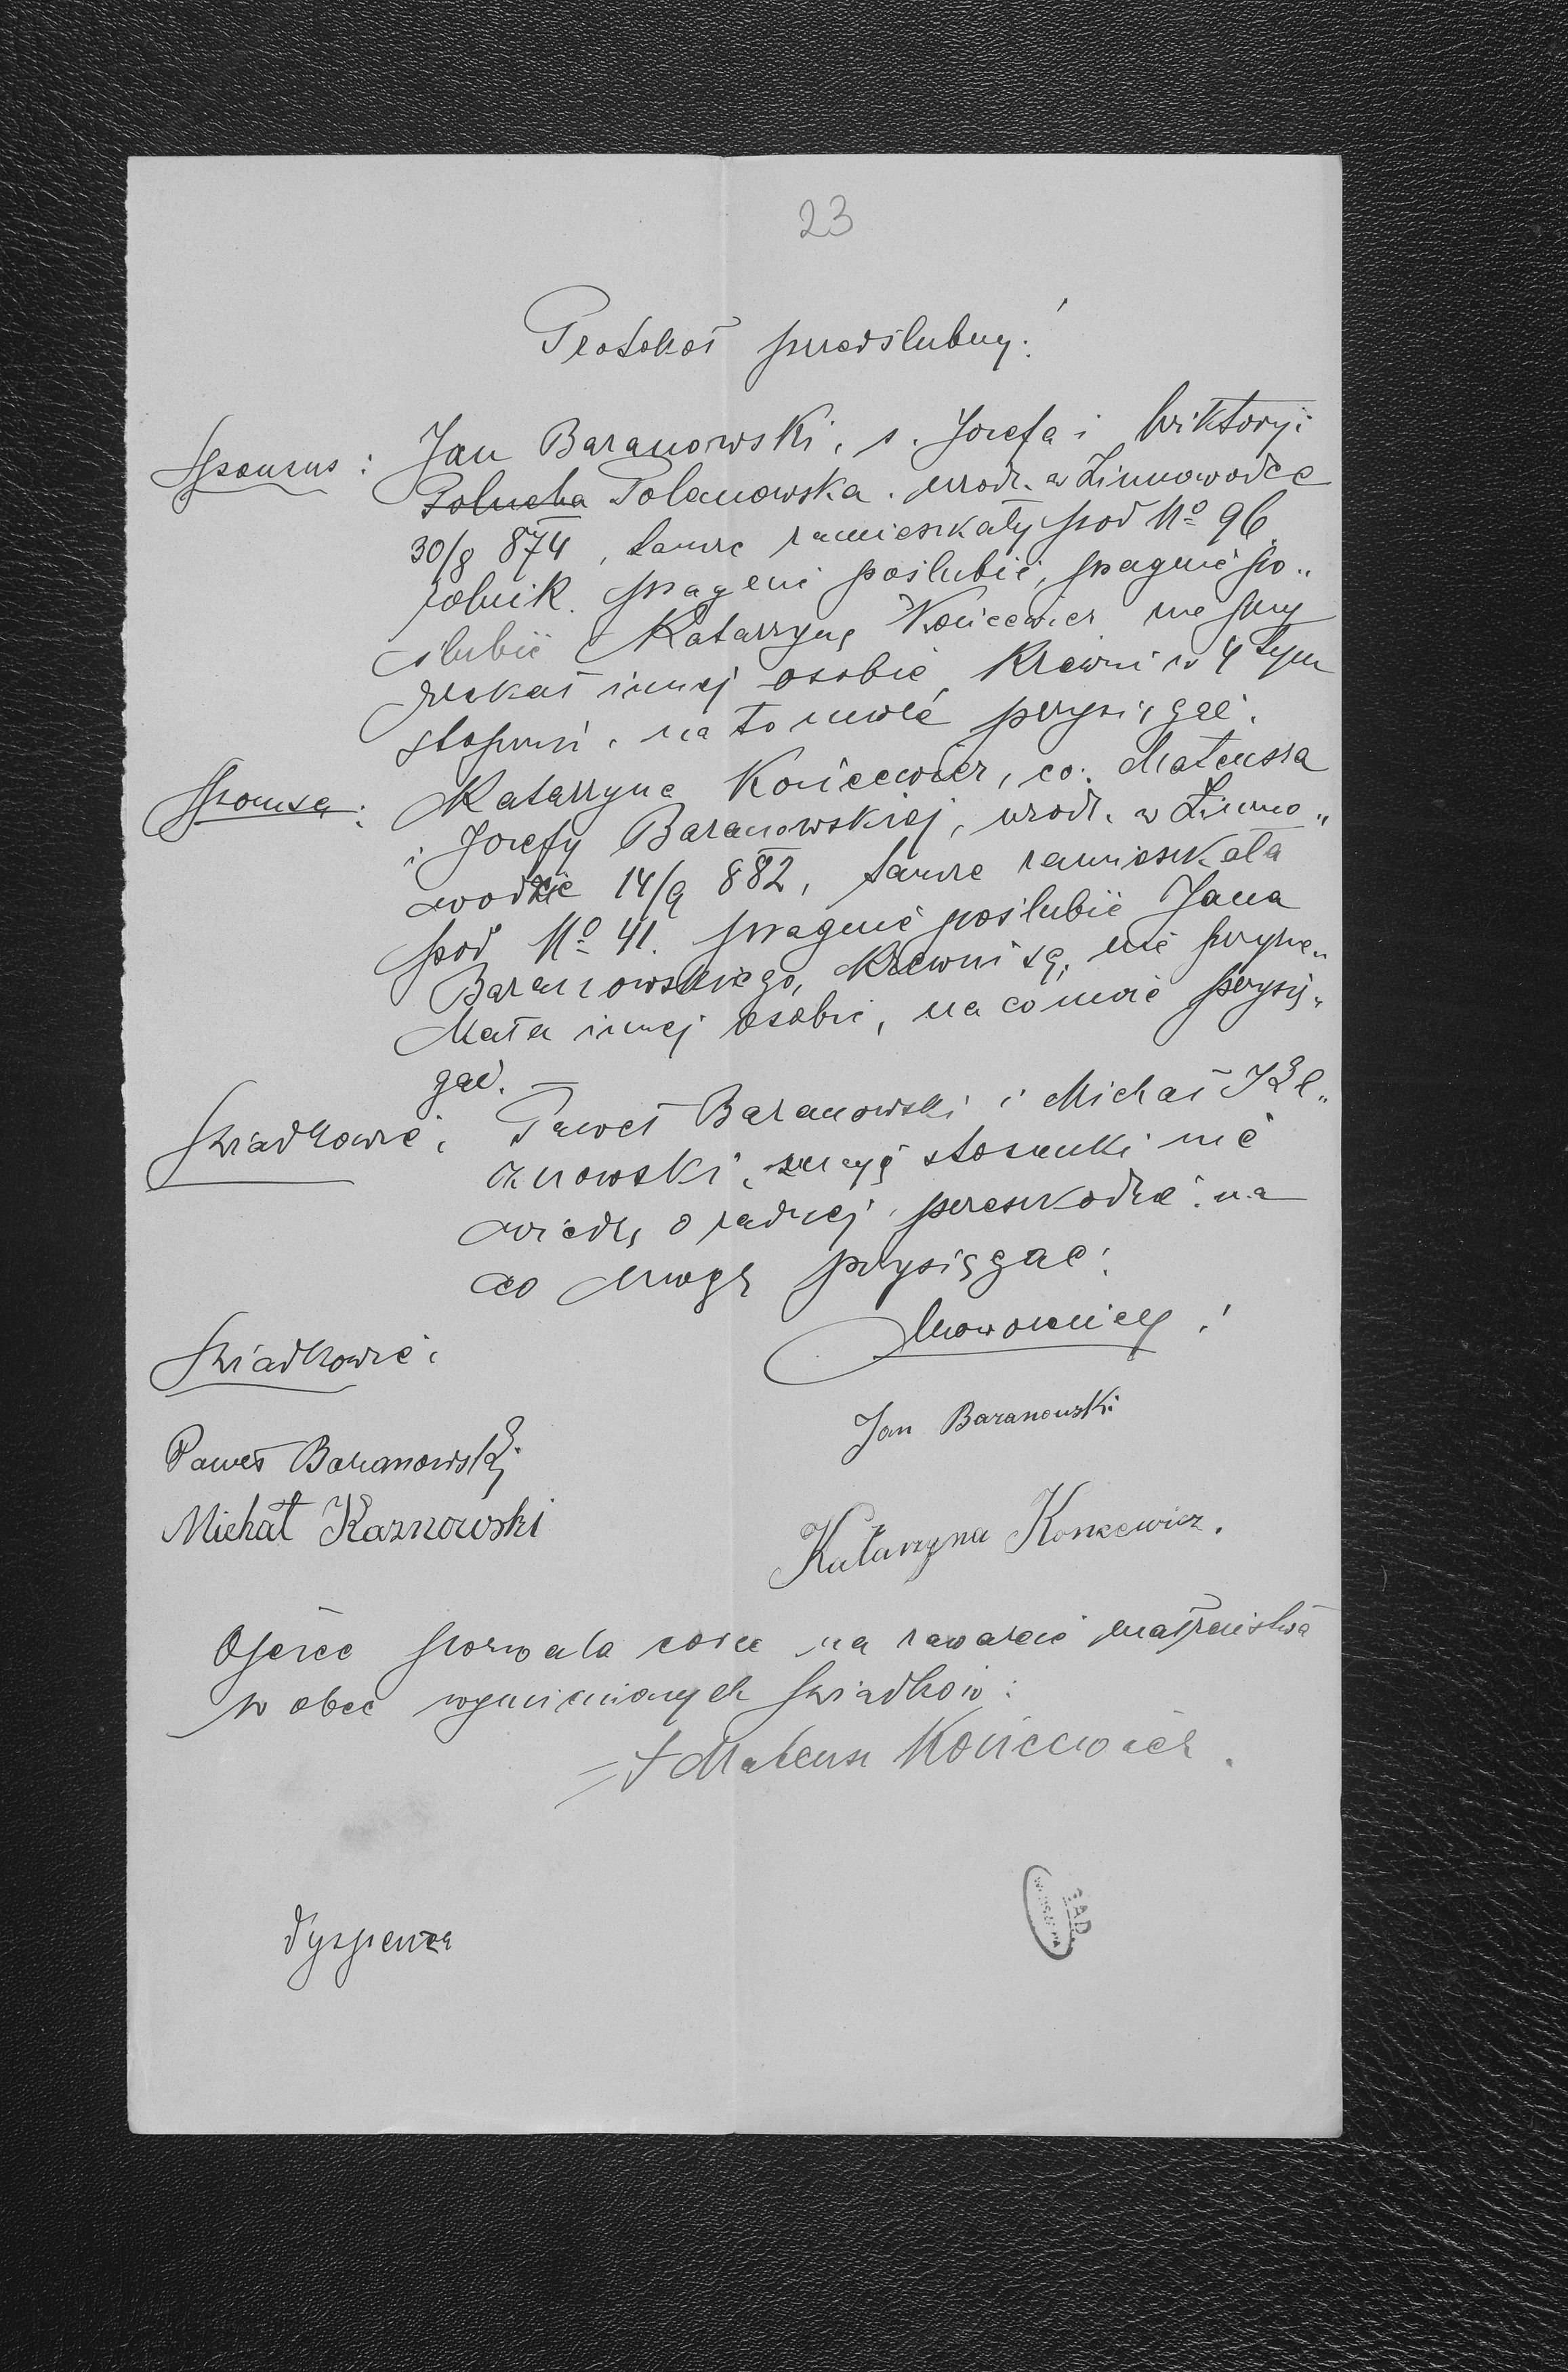 23
Protokół przedślubny:
Sponsus: Jan Baranowski, s. Józefa i Wiktoryi
Polanowska. urodz. w Zimnowodce
30/8 874, tamże zamieszkały pod No 96
rolnik. pragenie poślubić, pragnie po„
ślubić Katarzynę Końcewicz nie przy
rzekał innej osobie, Krewni w 4 tym
stopniu, na to może przysięgać.
Sponsa: Katarzyna Końcewicz, co. Mateusza
i Józefy Baranowskiej, urodz. w Zimno„
wodzie 14/9 882, tamże zamieszkała
pod No 41. pragnie poślubić Jana
Baranowskiego, Krewni są, nie przyrze„
kała innej osobie, na co może przysię„
gać.
Świadkowie: Paweł Baranowski i Michał
znowski, znają stosunki nie
wiedzą o żadnej przeszkodzie na
co mogą przysięgać:
Świadkowie: Nowożeńcy:
Jan Baranowski
Paweł Baranowski
Michał Kaznowski
Katarzyna Koncewicz.
Ojciec pozwala córce na zawarcie małżeństwa
w obec wymienionych świadków:
+ Mateusz Końcewicz.
Dyspenza